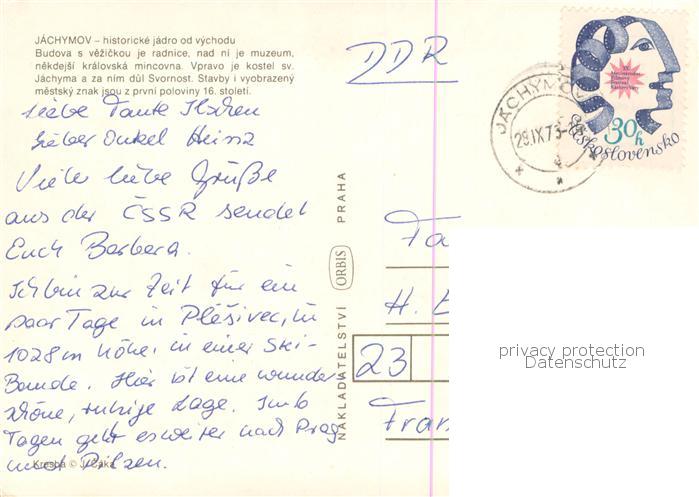 JÁCHYMOV – historické jádro od východu
Budova s věžičkou je radnice, nad ní je muzeum,
někdejší královská mincovna. Vpravo je kostel sv.
Jáchyma a za ním důl Svornost. Stavby i vyobrazený
městský znak jsou z první poloviny 16. století.
Liebe Tante
Lieber Onkel Heinz
Viele liebe Grüße
aus der ČSSR sendet
Euch Barbara.
Ich bin zur Zeit für ein
paar Tage in Plěšivec, in
1028 m Höhe, in einer Ski-
Baude. Hier ist eine wunder-
schöne, ruhige Lage. In
Tagen geht es weiter nach Prag
und Pilzen.
Kresba © J. Čáka
NAKLADATELSTVÍ ORBIS PRAHA
DDR
JÁCHYMOV
29.IX.73
30h
Československo
Ta
H.
23
Fran
privacy protection
Datenschutz